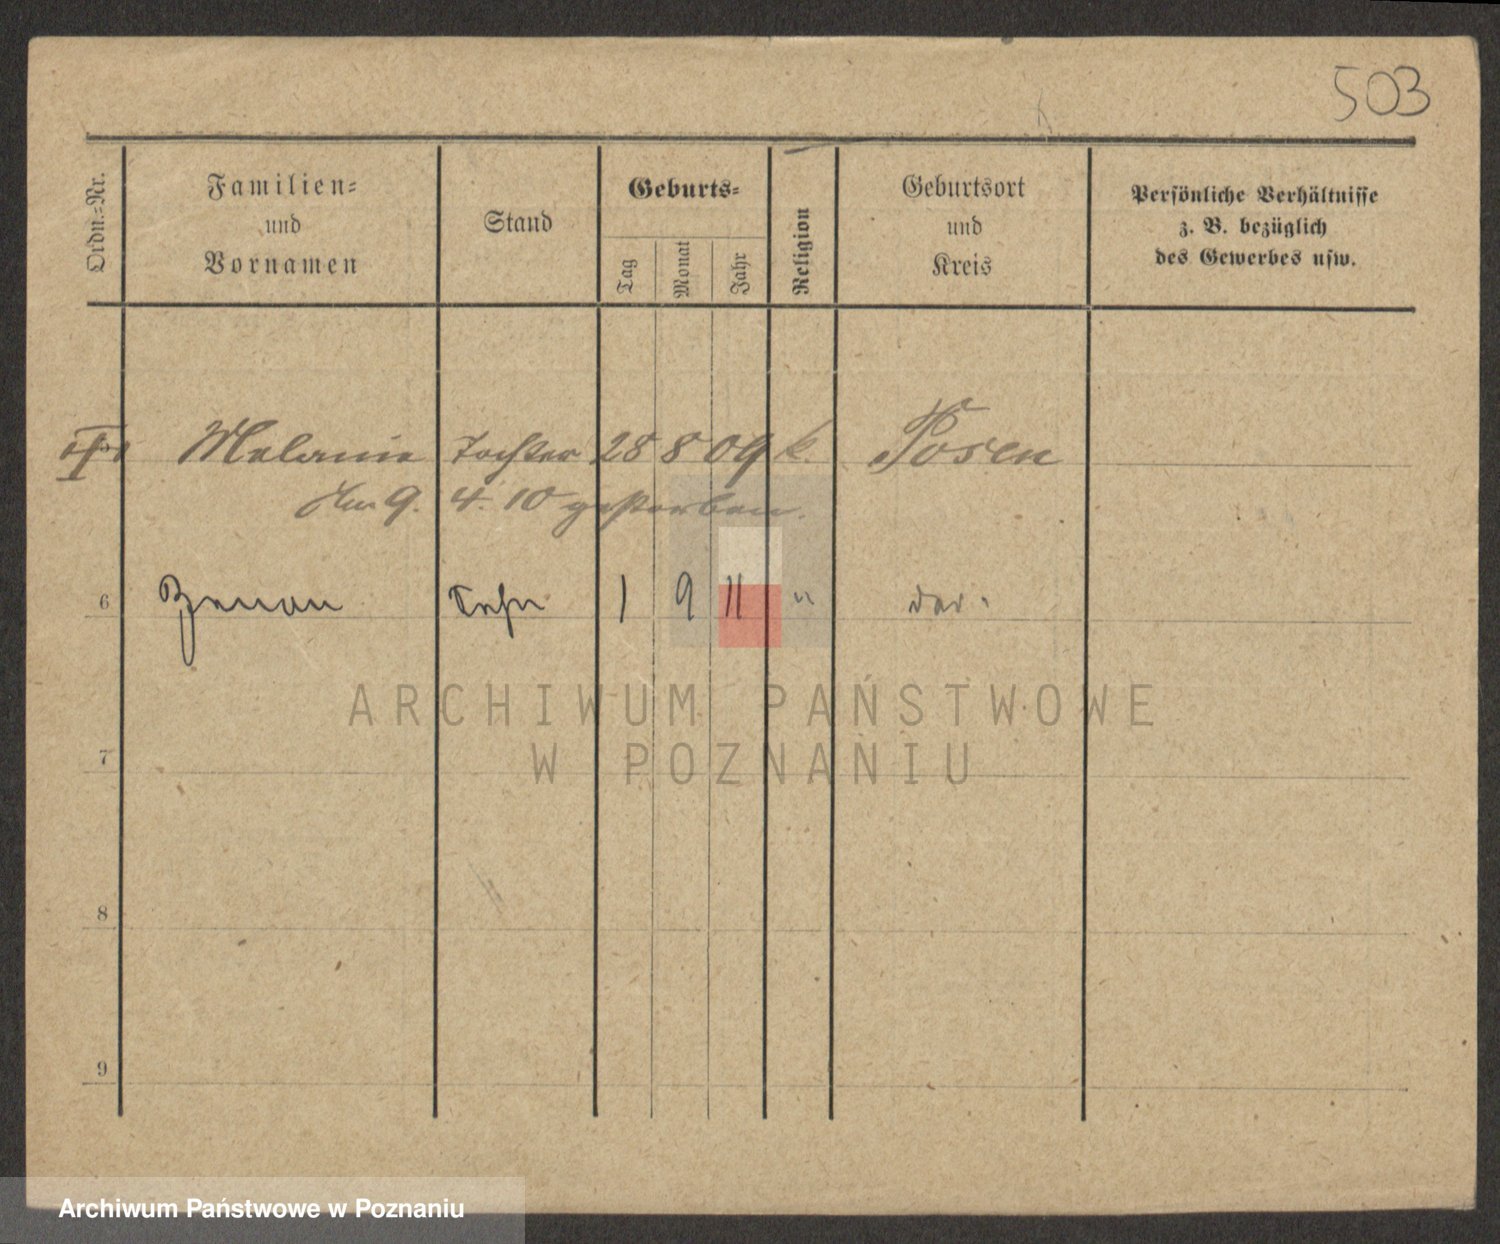 503
Ordn.-Nr.
Familien-
und
Vornamen
Stand
Geburts-
Tag
Monat
Jahr
Religion
Geburtsort
und
Kreis
Persönliche Verhältnisse
z. B. bezüglich
des Gewerbes usw.
Melanie Tochter 28 8 09 k. Posen
Am 9. 4. 10 gestorben.
6 Zenon Sohn 1 9 11 "
7
8
9
ARCHIWUM PAŃSTWOWE
W POZNANIU
Archiwum Państwowe w Poznaniu